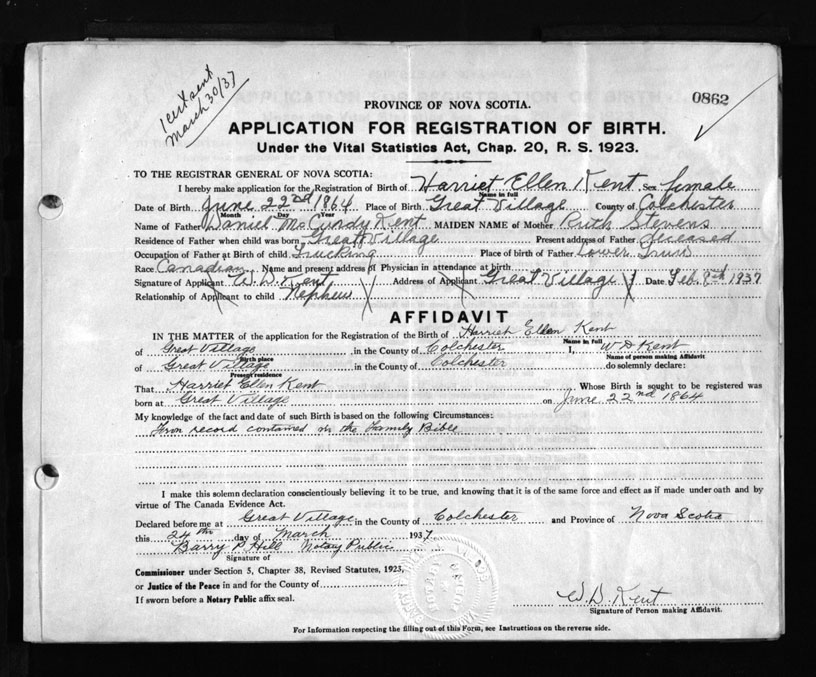 1 cert sent
March 30/37
0862
PROVINCE OF NOVA SCOTIA.
APPLICATION FOR REGISTRATION OF BIRTH.
Under the Vital Statistics Act, Chap. 20, R. S. 1923.
TO THE REGISTRAR GENERAL OF NOVA SCOTIA:
I hereby make application for the Registration of Birth of Harriet Ellen Kent Sex female
Name in full
Date of Birth June 22nd 1864 Place of Birth Great Village County of Colchester
Month Day Year
Name of Father Daniel McCurdy Kent MAIDEN NAME of Mother Ruth Stevens
Residence of Father when child was born Great Village Present address of Father deceased
Occupation of Father at Birth of child Trucking Place of birth of Father Lower Truro
Race Canadian Name and present address of Physician in attendance at birth
Signature of Applicant W. D. Kent Address of Applicant Great Village Date Feb. 9th 1937
Relationship of Applicant to child Nephew
AFFIDAVIT
IN THE MATTER of the application for the Registration of the Birth of Harriet Ellen Kent
Name in full
of Great Village in the County of Colchester I, W D Kent
Birth place Name of person making Affidavit
of Great Village in the County of Colchester do solemnly declare:
Present residence
That Harriet Ellen Kent Whose Birth is sought to be registered was
born at Great Village on June 22nd 1864
My knowledge of the fact and date of such Birth is based on the following Circumstances:
From record contained in the Family Bible
I make this solemn declaration conscientiously believing it to be true, and knowing that it is of the same force and effect as if made under oath and by
virtue of The Canada Evidence Act.
Declared before me at Great Village in the County of Colchester and Province of Nova Scotia
this 24th day of March 1937
Barry P Hill Notary Public
Signature of
Commissioner under Section 5, Chapter 38, Revised Statutes, 1923,
or Justice of the Peace in and for the County of
If sworn before a Notary Public affix seal.
W. D. Kent
Signature of Person making Affidavit.
For Information respecting the filling out of this Form, see Instructions on the reverse side.